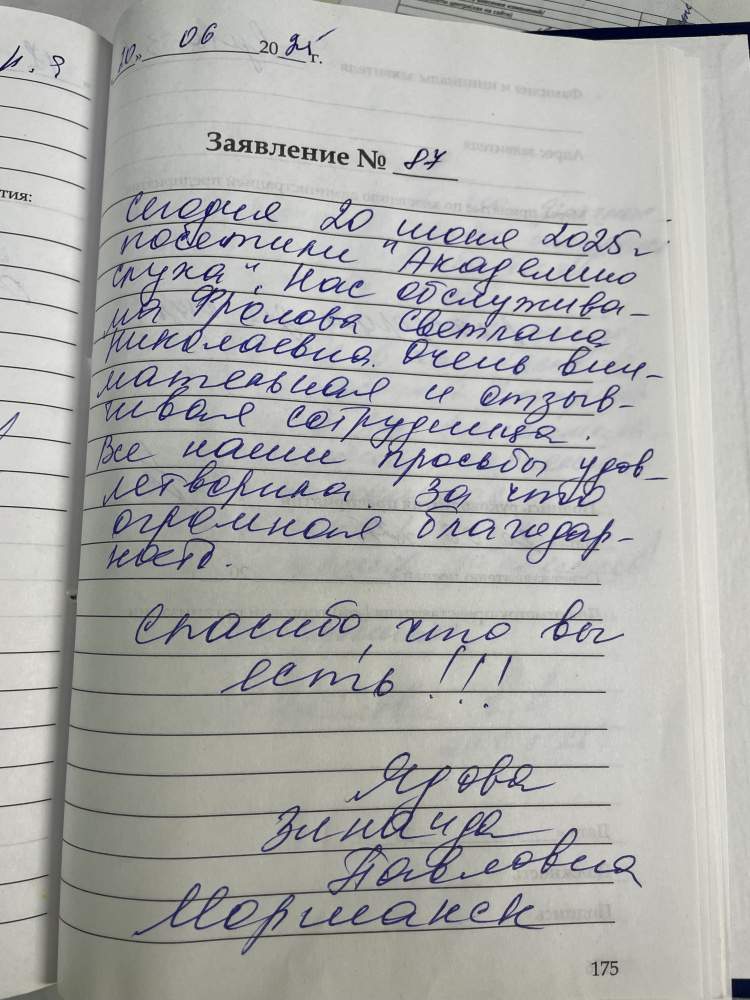 20» 06 2025 г.
Заявление № 87
тия:
Сегодня 20 июня 2025г
посетили "Академию
слуха". Нас обслужива-
ла Фролова Светлана
Николаевна. Очень вни-
мательная и отзыв-
чивая сотрудница.
Все наши просьбы удов-
летворила. За что
огромная благодар-
ность.
Спасибо, что вы
есть!!!
Ядова
Зинаида
Павловна
Морманск
175